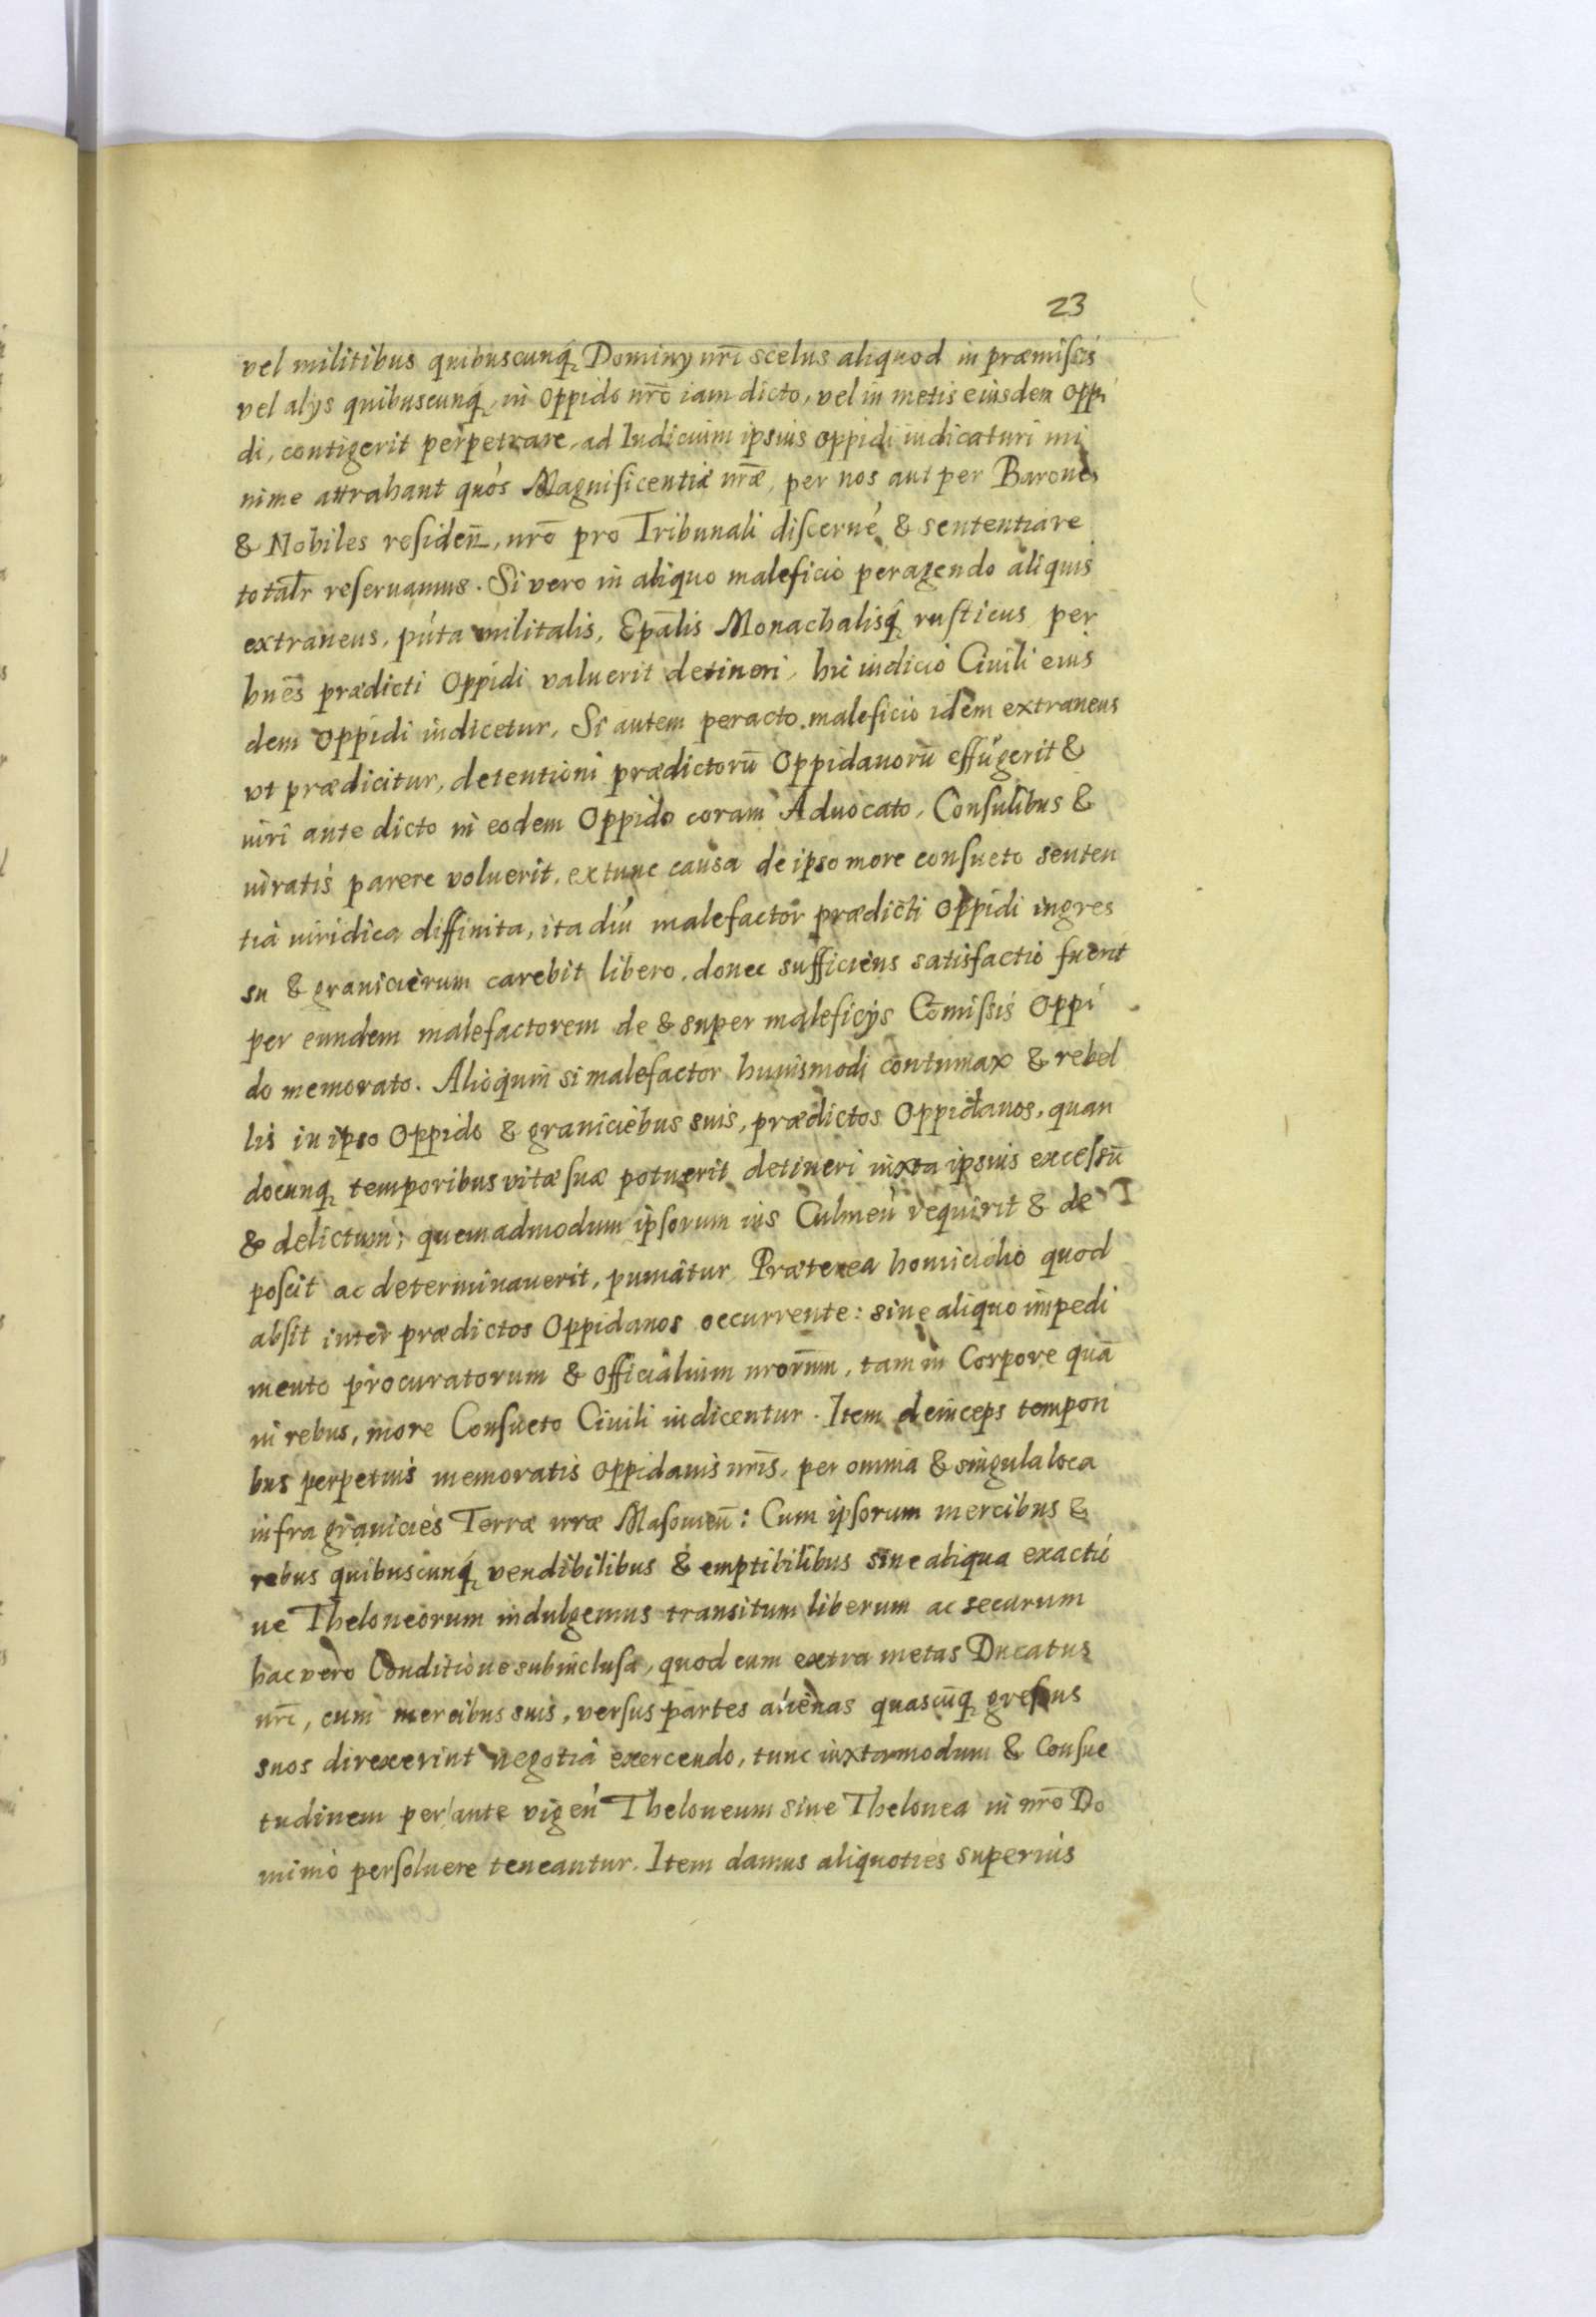 23
vel militibus quibuscunq́ꝫ Dominy nr̄i scelus aliquod in præmissis
vel alys quibuscunq́ꝫ, in Oppido nr̄o iam dicto, vel in metis eiusdem Oppi
di, contigerit perpetrare, ad Iudicium ipsius oppidi iudicaturi mi
nime attrahant quòs Magnificentiæ nr̄æ, per nos aut per Barones
& Nobiles residen̄, nr̄o pro Tribunali discerné & sententiare
totalr̄ reseruamus. Si vero in aliquo maleficio peragendo aliquis
extraneus, púta militalis, Epālis Monachalisq́ꝫ rusticus per
hnēs prædicti Oppidi valuerit detineri, hic iudicio Ciuili eius
dem Oppidi iudicetur, Si autem peracto maleficio idem extraneus
vt prædicitur, detentioni prædictorū Oppidanorū effugerit &
iuri ante dicto in eodem Oppido coram Aduocato, Consulibus &
iuratis parere voluerit, extunc causa de ipso more consueto senten
tia iuridica diffinita, ita diu malefactor prædicti Oppidi ingres
su & granicierum carebit libero, donec sufficiens satisfactio fuerit
per eundem malefactorem de & super maleficijs Com̄issis Oppi
do memorato. Alioquin si malefactor huiusmodi contumax & rebel
lis in ipso Oppido & graniciebus suis, prædictos Oppidanos, quan
docunqꝫ temporibus vitæ suæ potuerit detineri iuxta ipsius excessū
& delictum; quemadmodum ipsorum ius Culmeń requirit & de
poscit ac determinauerit, puniatur. Præterea homicidio quod
absit inter prædictos Oppidanos occurrente: sine aliquo impedi
mento procuratorum & Officialium nrōrum, tam in Corpore quā
in rebus, more Consueto Ciuili iudicentur. Item deinceps tempori
bus perpetuis memoratis Oppidanis nr̄is, per omnia & singula loca
infra granicies Terræ nræ Masouień: Cum ipsorum mercibus &
rebus quibuscunq́ꝫ vendibilibus & emptibilibus sine aliqua exactió
ne Theloneorum indulgemus transitum liberum ac securum
hac vero Conditione subinclusa, quod cum extra metas Ducatus
nr̄i, cum mercibus suis, versus partes alienas quascūqꝫ gressus
suos direxerint negotia exercendo, tunc iuxta modum & Consue
tudinem per ante vigeń Theloneum siue Thelonea in nr̄o Do
minio persoluere teneantur. Item damus aliquoties superius